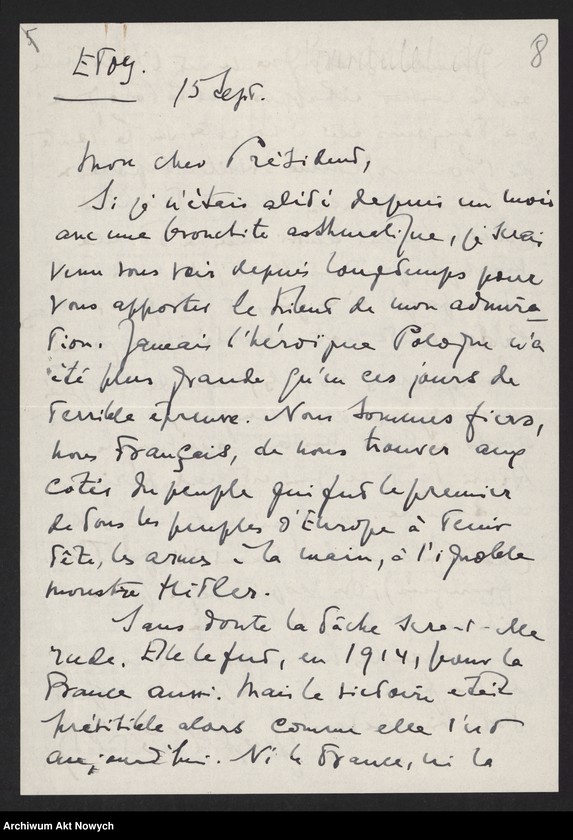 8
Etoy.
15 Sept.
Mon cher Président,
Si je n'étais alité depuis un mois
avec une bronchite asthmatique, je serais
venu vous voir depuis longtemps pour
vous apporter le tribut de mon admira-
tion. Jamais l'héroïque Pologne n'a
été plus grande qu'en ces jours de
terrible épreuve. Nous sommes fiers,
nous Français, de nous trouver aux
côtés du peuple qui fut le premier
de tous les peuples d'Europe à tenir
tête, les armes à la main, à l'ignoble
monstre Hitler.
Sans doute la tâche sera-t-elle
rude. Elle le fut, en 1914, pour la
France aussi. Mais la victoire était
prévisible alors comme elle l'est
aujourd'hui. Ni la France, ni la
Archiwum Akt Nowych